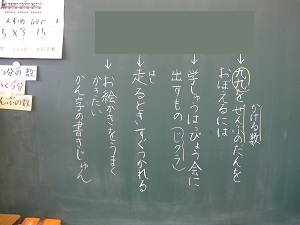 かける数
↓九九をぜんぶのだんを
おぼえるには
↓学しゅうはっぴょう会に
出すもの
↓走るときすぐつかれる
はし
↓お絵かきをうまく
かきたい
かん字の書きじゅん
5×3=15
つ分の数
いくつ分
ぶの数